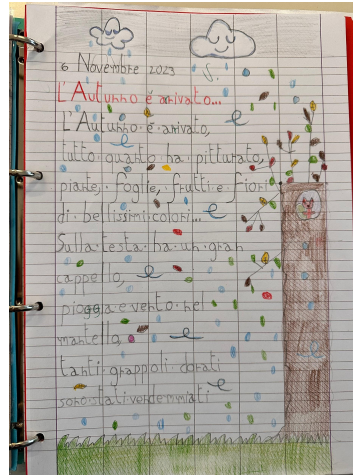 6 Novembre 2023 S.
L'Autunno é arivato...
L'Autunno é arivato,
tutto quanto ha pitturato,
piante, foglie, frutti e fiori
di bellissimi colori...
Sulla testa ha un gran
cappello,
pioggia e vento nel
mantello,
tanti grappoli dorati
sono stati vendemmiati